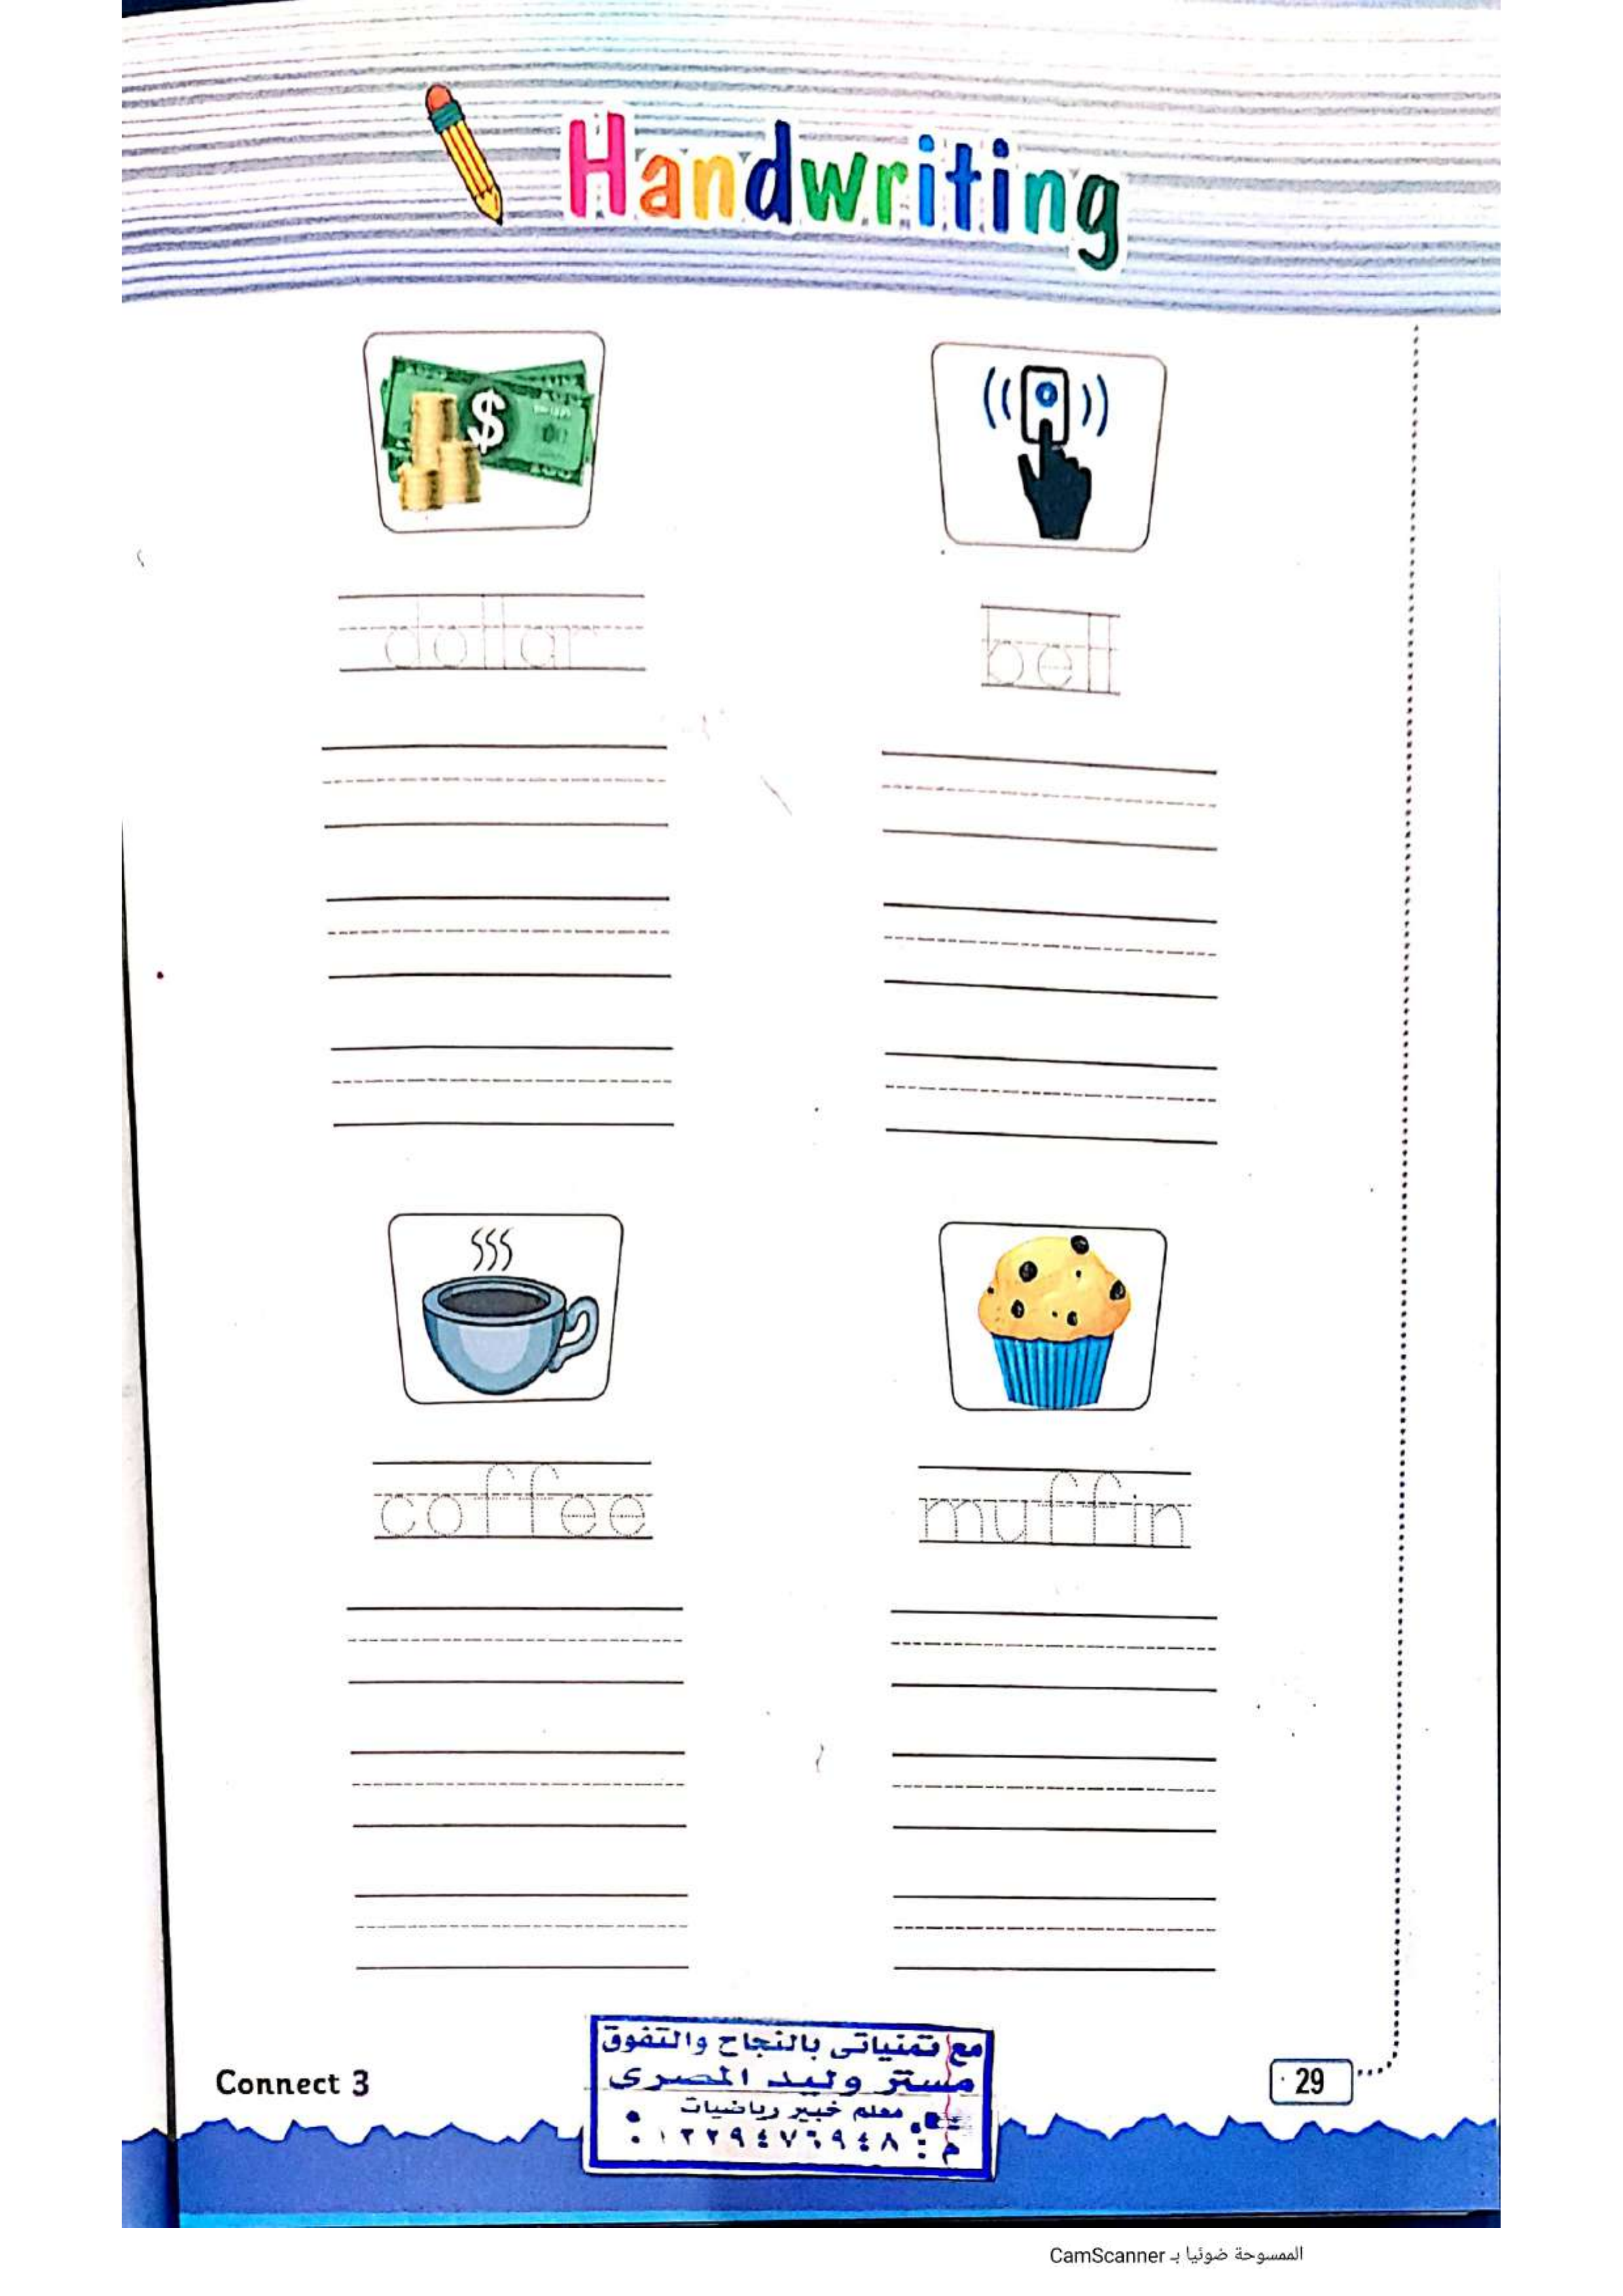 Handwriting
$
dollar
bell
coffee
muffin
مع تمنياتى بالنجاح والتفوق
مستر وليد المصرى
معلم خبير رياضيات
م : ٠١٢٢٩٤٧٦٩٤٨
Connect 3
29
الممسوحة ضوئيا بـ CamScanner